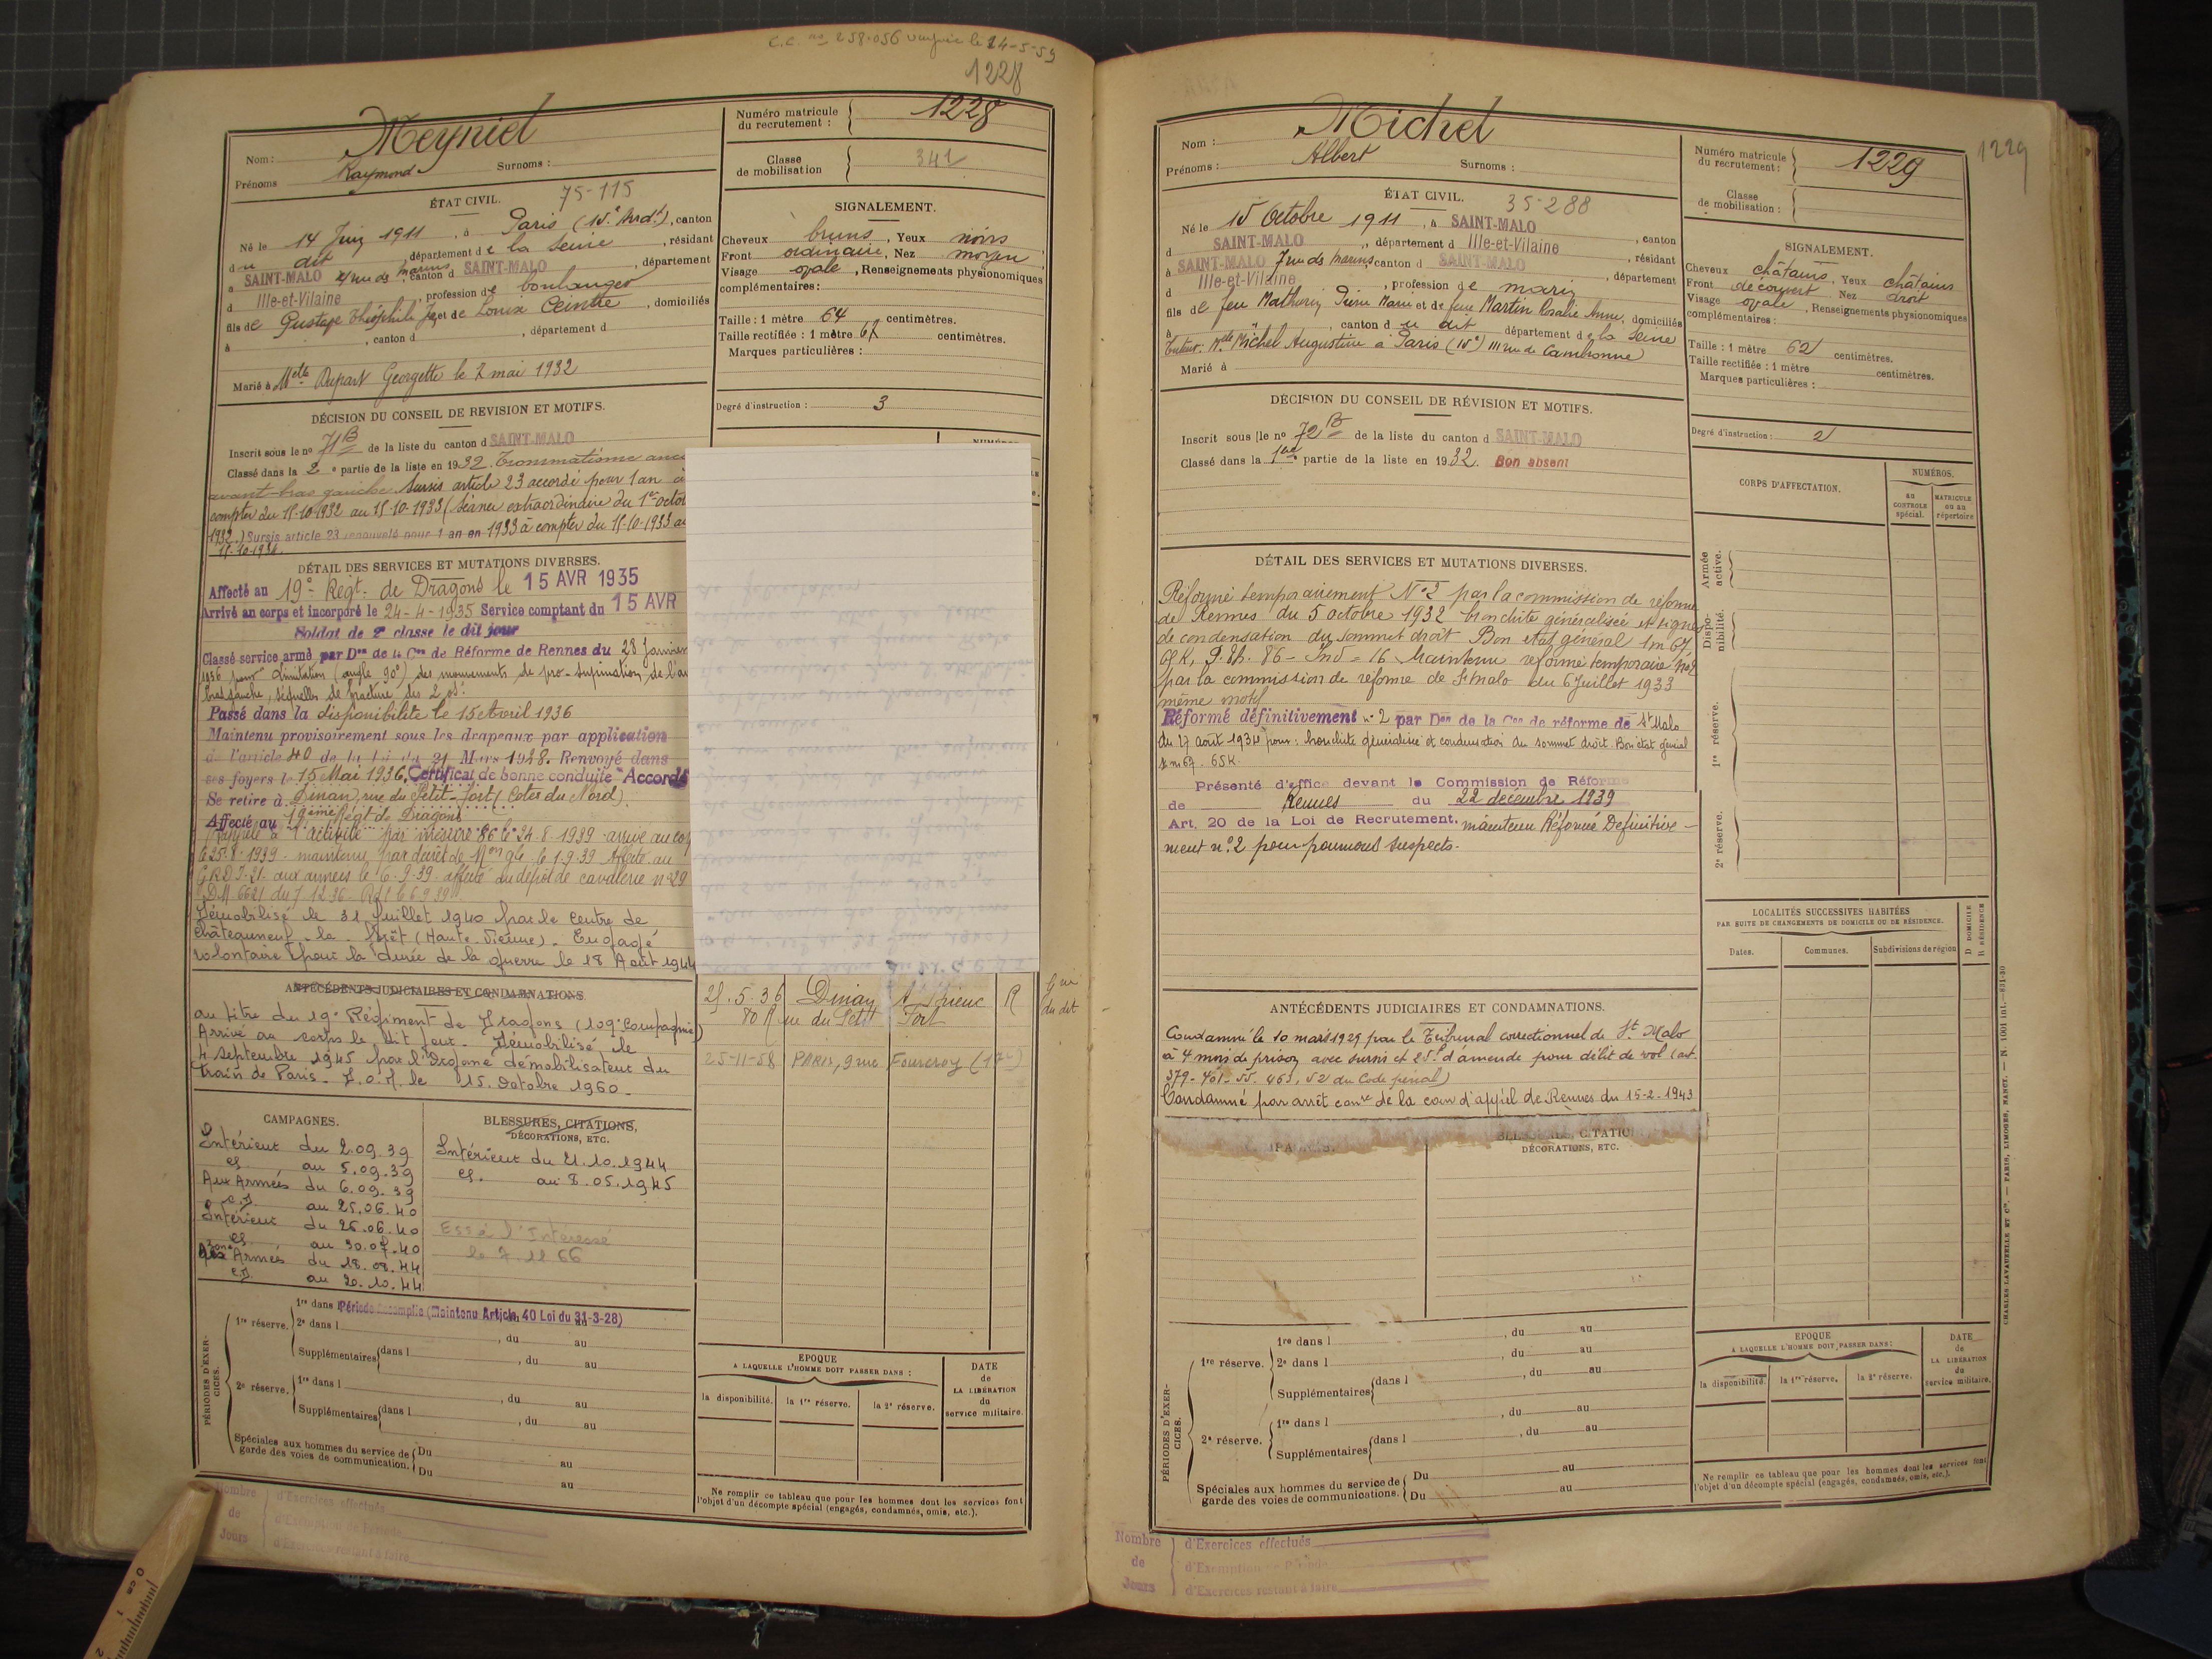 C.C. no 258.056 le 24-5-59
1228
Nom : Meyniel
Prénoms Raymond Surnoms :
Numéro matricule du recrutement : 1228
Classe de mobilisation 341
ÉTAT CIVIL. 75-115
Né le 14 Juin 1911, à Paris (15e Arrdt), canton
du dit, département de la Seine, résidant
à SAINT-MALO rue des marins, canton d SAINT-MALO, département
d Ille-et-Vilaine, profession de boulanger
fils de Gustave Théophile et de Louise Ceintre, domiciliés
à , canton d , département d
Marié à Melle Dupart Georgette le 2 mai 1932
SIGNALEMENT.
Cheveux bruns, Yeux noirs
Front ordinaire, Nez moyen
Visage ovale, Renseignements physionomiques
complémentaires :
Taille : 1 mètre 64 centimètres.
Taille rectifiée : 1 mètre 67 centimètres.
Marques particulières :
Degré d'instruction : 3
DÉCISION DU CONSEIL DE REVISION ET MOTIFS.
Inscrit sous le no 71B de la liste du canton d SAINT-MALO
Classé dans la 2e partie de la liste en 1932. Traumatisme anci
avant-bras gauche. Sursis article 23 accordé pour 1 an à
compter du 15-10-1932 au 15-10-1933 (Séance extraordinaire du 1er octob
1932.) Sursis article 23 renouvelé pour 1 an en 1933 à compter du 15-10-1933 au
15-10-1934.
DÉTAIL DES SERVICES ET MUTATIONS DIVERSES.
Affecté au 19e Régt. de Dragons le 15 AVR 1935
Arrivé au corps et incorporé le 24-4-1935 Service comptant du 15 AVR
Soldat de 2e classe le dit jour
Classé service armé par Don de la Con de Réforme de Rennes du 28 Janvier
1936 pour limitation (angle 90°) des mouvements de pro-supination de l'av
bras gauche, séquelles de fracture des 2 os.
Passé dans la disponibilité le 15 Avril 1936
Maintenu provisoirement sous les drapeaux par application
de l'article 40 de la Loi du 31 Mars 1928. Renvoyé dans
ses foyers le 15 Mai 1936. Certificat de bonne conduite "Accordé
Se retire à Dinan, rue du Petit-Fort (Côtes du Nord).
Affecté au 19ème Régt de Dragons
Rappelé à l'activité par mesure le 24.8.1939 arrivé au co
le 25.8.1939. maintenu par décret de Mon gle le 1.9.39 Affecté au
G.R.D.I. 21 aux armées le 6.9.39 affecté au dépôt de cavalerie no 29
D.M 6621 du 7 12 36.
Démobilisé le 31 Juillet 1940 par le centre de
Châteauneuf-la-Forêt (Haute-Vienne). Engagé
volontaire pour la durée de la guerre le 18 Août 1944
ANTÉCÉDENTS JUDICIAIRES ET CONDAMNATIONS.
au titre du 19e Régiment de Dragons (109e Compagnie)
Arrivé au corps le dit jour. Démobilisé le
4 Septembre 1945 par l'organe démobilisateur du
train de Paris. le 15 Octobre 1960.
25.5.36 Dinan St Brieuc R
80 Rue du Petit Fort
25-11-58 PARIS, 9 rue Fourcroy (17e)
CAMPAGNES.
Intérieur du 2.09.39
CS au 5.09.39
Aux Armées du 6.09.39
C.D. au 25.06.40
Intérieur du 26.06.40
CS au 30.07.40
Aux Armées du 18.08.44
C.D. au 20.10.44
BLESSURES, CITATIONS,
DÉCORATIONS, ETC.
Intérieur du 21.10.1944
CS. au 8.05.1945
l'Intéressé
le 7.11 66
PÉRIODES D'EXERCICES.
1re réserve. 1re dans l Période accomplie (Maintenu Article 40 Loi du 31-3-28)
2e dans l , du au
Supplémentaires dans l , du au
2e réserve. 1re dans l , du au
Supplémentaires dans l , du au
Spéciales aux hommes du service de garde des voies de communication. Du au
Du au
EPOQUE
A LAQUELLE L'HOMME DOIT PASSER DANS :
la disponibilité. la 1re réserve. la 2e réserve.
DATE de LA LIBÉRATION du service militaire.
Ne remplir ce tableau que pour les hommes dont les services font
l'objet d'un décompte spécial (engagés, condamnés, omis, etc.).
Nombre de Jours
d'Exercices effectués
d'Exemption de Période
d'Exercices restant à faire
1229
Nom : Michel
Prénoms : Albert Surnoms :
Numéro matricule du recrutement : 1229
Classe de mobilisation :
ÉTAT CIVIL. 35-288
Né le 15 Octobre 1911, à SAINT-MALO
d SAINT-MALO, département d Ille-et-Vilaine, canton
à SAINT-MALO 7 rue des marins, canton d SAINT-MALO, résidant
d Ille-et-Vilaine, profession de marin, département
fils de feu Mathurin Pierre Marie et de feue Martin Rosalie Anne, domiciliés
à , canton d u dit département de la Seine
Tuteur: Melle Michel Augustine à Paris (15e) 111 rue de Cambronne
Marié à
SIGNALEMENT.
Cheveux châtains, Yeux châtains
Front découvert Nez droit
Visage ovale, Renseignements physionomiques
complémentaires :
Taille : 1 mètre 62 centimètres.
Taille rectifiée : 1 mètre centimètres.
Marques particulières :
Degré d'instruction : 2
DÉCISION DU CONSEIL DE RÉVISION ET MOTIFS.
Inscrit sous le no 72B de la liste du canton d SAINT-MALO
Classé dans la 1ère partie de la liste en 1932. Bon absent
CORPS D'AFFECTATION.
NUMÉROS.
au CONTROLE spécial. MATRICULE ou au répertoire
Armée active.
Disponibilité.
1re réserve.
2e réserve.
DÉTAIL DES SERVICES ET MUTATIONS DIVERSES.
Réformé temporairement No 2 par la commission de réforme
de Rennes du 5 octobre 1932 bronchite généralisée et signes
de condensation du sommet droit Bon état général 1m67
65K, P. th. 86 - Ind = 16 Maintenu réformé temporaire No 2
par la commission de réforme de St Malo du 6 Juillet 1933
même motif
Réformé définitivement no 2 par Don de la Con de réforme de St Malo
du 27 août 1934 pour : bronchite généralisée et condensation du sommet droit. Bon état général
1m67. 65K.
Présenté d'office devant la Commission de Réforme
de Rennes du 22 decembre 1939
Art. 20 de la Loi de Recrutement. maintenu Réformé Définitive-
ment no 2 pour poumons suspects.
LOCALITÉS SUCCESSIVES HABITÉES
PAR SUITE DE CHANGEMENTS DE DOMICILE OU DE RÉSIDENCE.
Dates. Communes. Subdivisions de région
D DOMICILE R RÉSIDENCE
ANTÉCÉDENTS JUDICIAIRES ET CONDAMNATIONS.
Condamné le 10 mars 1929 par le Tribunal correctionnel de St Malo
à 4 mois de prison avec sursis et 25f d'amende pour délit de vol (art.
379-401-55-463, 52 du Code pénal)
Condamné par arrêt conre de la cour d'appel de Rennes du 15-2-1943
BLESSURES, CITATIO
DÉCORATIONS, ETC.
PÉRIODES D'EXERCICES.
1re réserve. 1re dans l , du au
2e dans l , du au
Supplémentaires dans l , du au
2e réserve. 1re dans l , du au
Supplémentaires dans l , du au
Spéciales aux hommes du service de garde des voies de communications. Du au
Du au
EPOQUE
A LAQUELLE L'HOMME DOIT PASSER DANS :
la disponibilité. la 1re réserve. la 2e réserve.
DATE de LA LIBÉRATION du service militaire.
Ne remplir ce tableau que pour les hommes dont les services font
l'objet d'un décompte spécial (engagés, condamnés, omis, etc.).
CHARLES-LAVAUZELLE ET Cie. — PARIS, LIMOGES, NANCY.
Nombre de Jours
d'Exercices effectués
d'Exemption Période
d'Exercices restant à faire